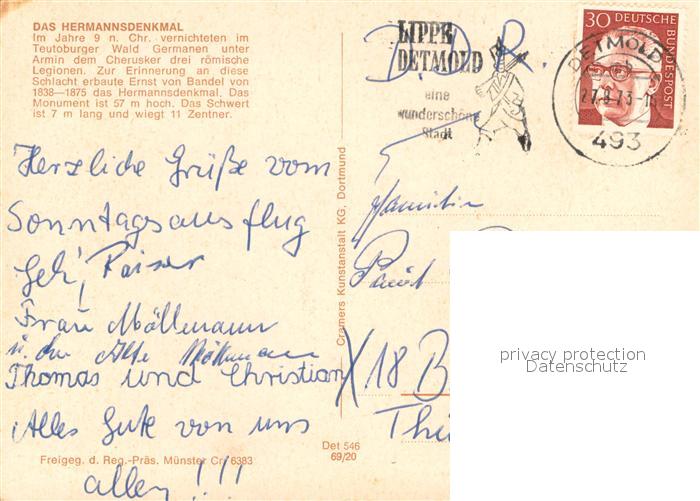 DAS HERMANNSDENKMAL
Im Jahre 9 n. Chr. vernichteten im
Teutoburger Wald Germanen unter
Armin dem Cherusker drei römische
Legionen. Zur Erinnerung an diese
Schlacht erbaute Ernst von Bandel von
1838—1875 das Hermannsdenkmal. Das
Monument ist 57 m hoch. Das Schwert
ist 7 m lang und wiegt 11 Zentner.
Herzliche Grüße vom
Sonntagsausflug
Frau Möllmann
u. der Alte Möllmann
Thomas und Christian
Alles Gute von uns
allen !!!
Freigeg. d. Reg.-Präs. Münster Cr 6383
Det 546
69/20
Cramers Kunstanstalt KG, Dortmund
LIPPE
DETMOLD
eine
wunderschöne
Stadt
D.D.R.
30 DEUTSCHE
BUNDESPOST
DETMOLD
27.8.73
493
Familie
X 18 B
privacy protection
Datenschutz